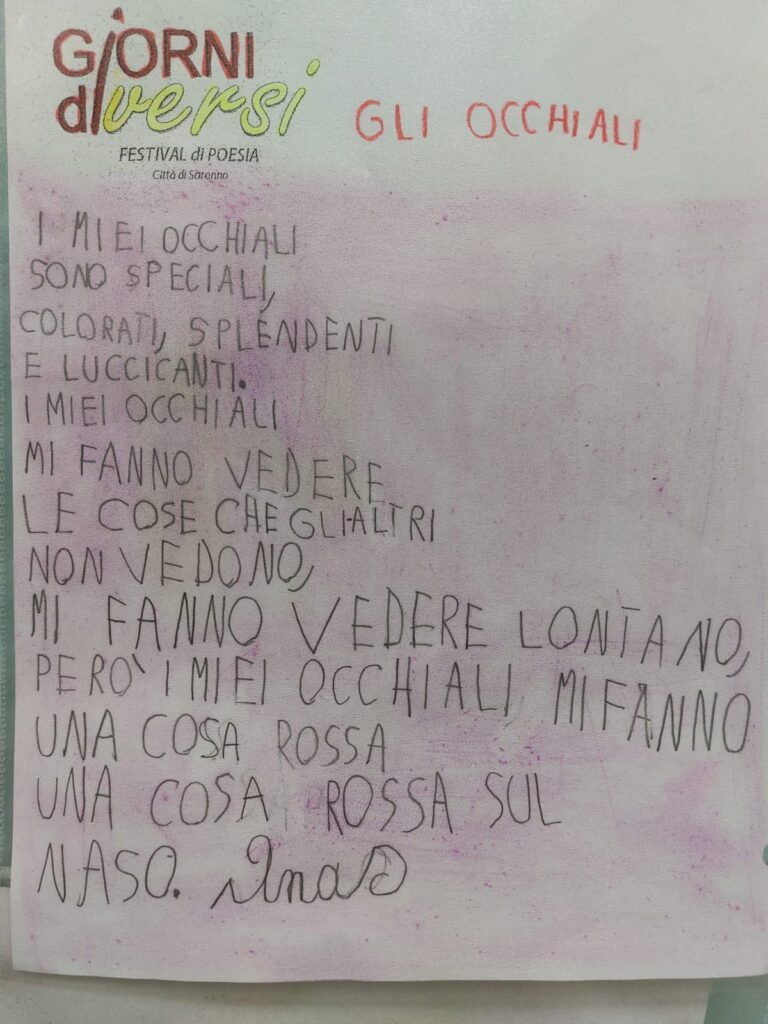 GiORNI
diversi
FESTIVAL di POESIA
Città di Saronno
GLI OCCHIALI
I MIEI OCCHIALI
SONO SPECIALI,
COLORATI, SPLENDENTI
E LUCCICANTI.
I MIEI OCCHIALI
MI FANNO VEDERE
LE COSE CHE GLI ALTRI
NON VEDONO,
MI FANNO VEDERE LONTANO,
PERO' I MIEI OCCHIALI MI FANNO
UNA COSA ROSSA
UNA COSA ROSSA SUL
NASO.